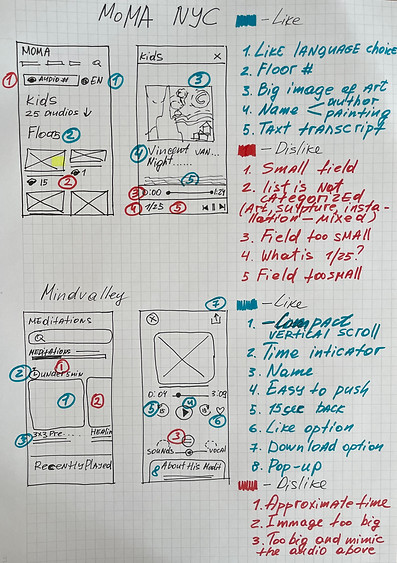 MoMA NYC
- Like
MOMA
AUDIO #
EN
1
1
Kids
25 audios ↓
Floors 2
15
2
1
Kids ×
3
4 Vincent VAN...
Night...
5
3 0:00
4 1/25
5
1. Like LANGUAGE CHOICE
2. Floor #
3. Big image of ART
4. Name < author
painting
5. Taxt transcript
- Dislike
1. Small field
2. list is NOT
CATEGORIZED
(Art, sculpture, insta-
llation - mixed)
3. Field too SMALL
4. What is 1/25?
5 Field too SMALL
Mindvalley
- Like
MEDITATIONS
Meditations
1
2
Under 5 min
1
2
3
3x3 Pre...
HEALIN
Recently Played
7
×
0:04
3:09
4
5
6
3
SOUNDS
VOCAL
8 About His Medit
1. - Compact
VERTICAL SCROLL
2. Time inticator
3. Name
4. EASY to push
5. 15sec back
6. Like option
7. Download option
8. Pop-up
- Dislike
1. Approximate time
2. Immage too big
3. Too big and mimic
the audio above